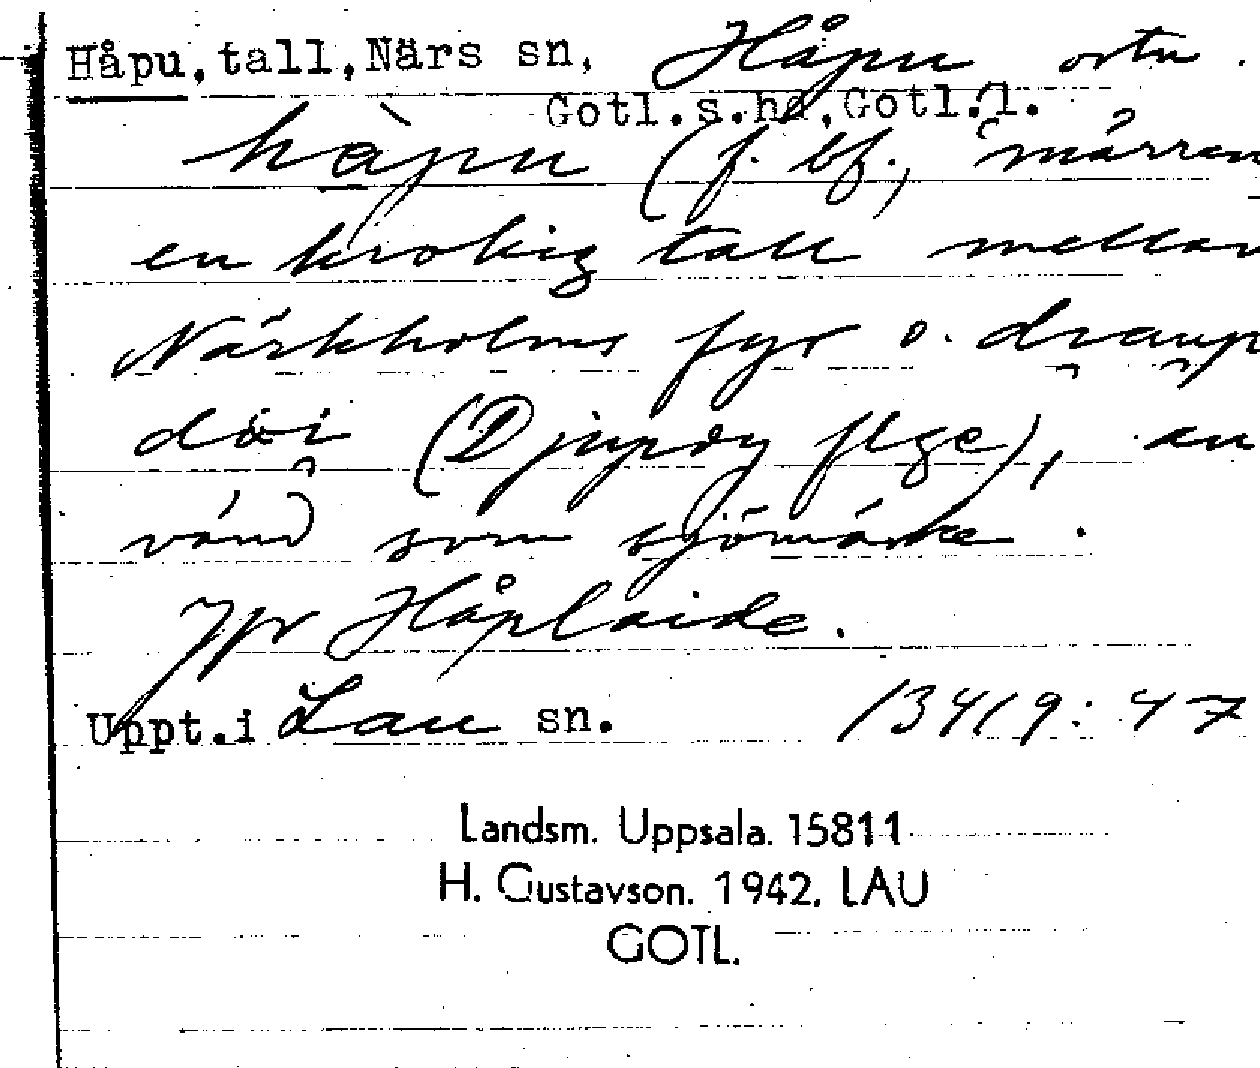 Håpu, tall, Närs sn, Håpu ortn.
Gotl.s.hd, Gotl.l.
hàpu (f. bf., mårren
en krokig tall mellan
Närkholms fyr o. draup
döi (Djupdy flge), an
vänd som sjömärke.
Jfr Håplaide.
Uppt. i Lau sn. 13419:47
Landsm. Uppsala. 15811
H. Gustavson. 1942. LAU
GOTL.